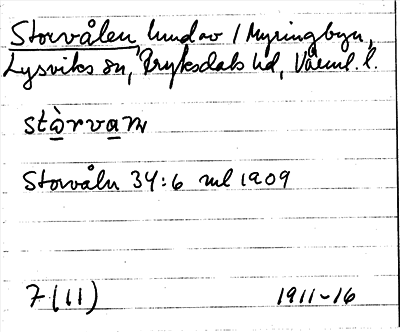 Storvålen hmd av / Myringbyn,
Lysviks sn, Fryksdals hd, Värml. l.
stòrvaɳ
Storvåln 34:6 ml 1909
7(11) 1911-16